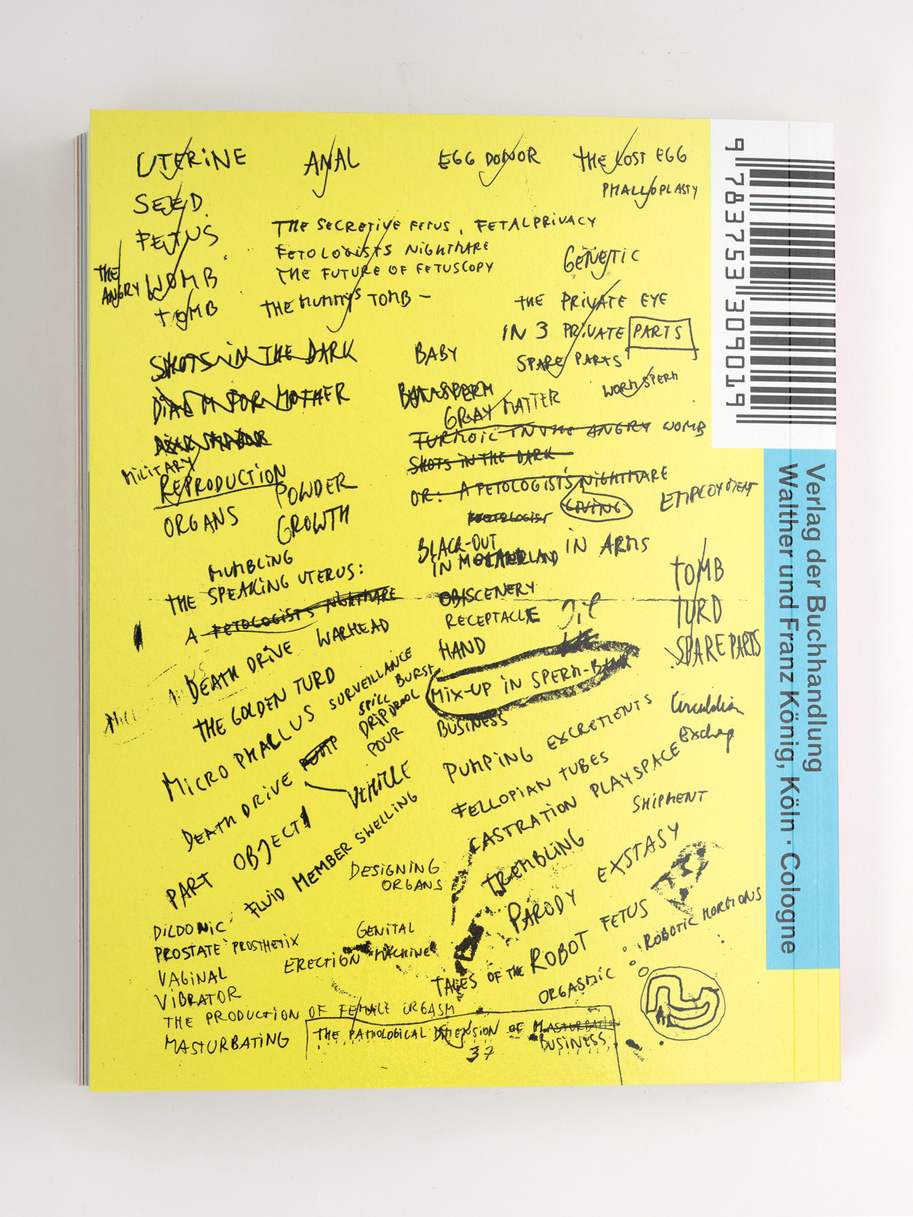 UTERINE ANAL EGG DONOR THE LOST EGG
PHALLOPLASTY
SEED
FETUS
THE SECRETIVE FETUS, FETAL PRIVACY
FETOLOGISTS NIGHTMARE
THE FUTURE OF FETUSCOPY
GENETIC
THE ANGRY WOMB
TOMB
THE MUMMYS TOMB –
THE PRIVATE EYE
IN 3 PRIVATE PARTS
SPARE PARTS
SHOTS IN THE DARK
BABY
WORM SPERM
DIAL M FOR MOTHER
GRAY MATTER
TURMOIL IN THE ANGRY WOMB
SHOTS IN THE DARK
MILITARY
REPRODUCTION
ORGANS
POWDER
GROWTH
OR: A FETOLOGIST'S NIGHTMARE
LIVING
FETOLOGIST
EMPLOYMENT
BLACK-OUT
IN MOTHERLAND
IN ARMS
MUMBLING
THE SPEAKING UTERUS:
A FETOLOGIST'S NIGHTMARE
OBSCENERY
RECEPTACLE
HAND
TOMB
TURD
SPARE PARTS
DEATH DRIVE WARHEAD
THE GOLDEN TURD
MIX-UP IN SPERM-BANK
MICRO PHALLUS SURVEILLANCE
SPILL BURST
DRIP DROOL
POUR
BUSINESS
Circulation
Exchange
DEATH DRIVE PUMP
VEHICLE
PUMPING EXCREMENTS
FELLOPIAN TUBES
CASTRATION PLAYSPACE
SHIPMENT
PART OBJECT
FLUID MEMBER SWELLING
DESIGNING
ORGANS
TREMBLING
PARODY EXSTASY
DILDONIC
PROSTATE PROSTHETIX
VAGINAL
VIBRATOR
GENITAL
ERECTION MACHINE
TALES OF THE ROBOT FETUS
ORGASMIC
ROBOTIC
THE PRODUCTION OF FEMALE ORGASM
MASTURBATING
THE PATHOLOGICAL DIMENSION OF MASTURBATING
BUSINESS
37
9 783753 309019
Verlag der Buchhandlung
Walther und Franz König, Köln · Cologne